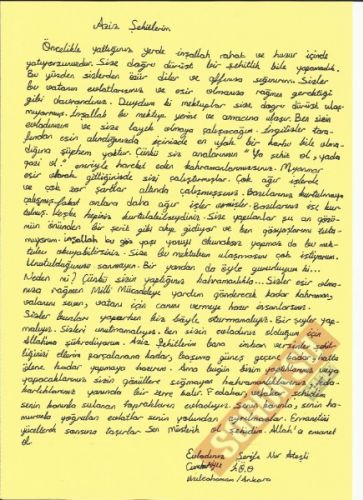 Aziz Şehitlerim
Öncelikle yattığınız yerde inşallah rahat ve huzur içinde
yatıyorsunuzdur. Size doğru dürüst bir şehitlik bile yapamadık.
Bu yüzden sizlerden özür diler ve affınıza sığınırım. Sizler
bu vatanın evlatlarısınız ve esir olmanıza rağmen gerektiği
gibi davrandınız. Duydum ki mektuplar size doğru dürüst ulaş-
mıyormuş. İnşallah bu mektup yerine ve amacına ulaşır. Ben sizin
evladınızım ve size layık olmaya çalışacağım. İngilizler tara-
fından esir alındığınızda içinizde en ufak bir korku bile olma-
dığına şüphem yoktur. Çünkü siz analarının "Ya şehit ol, yada
gazi ol." emriyle hareket eden kahramanlarımızsınız. Myanmar
esir olarak gittiğinizde sizi çalıştırmışlar. Çok ağır işlerde
ve çok zor şartlar altında çalışmışsınız. Bazılarınız kurtulmaya
çalışmış fakat onlara daha ağır işler vermişler. Bazılarınız ise kur-
tulmuş. Keşke hepiniz kurtulabilseydiniz. Size yapılanlar şu an gözü-
mün önünden bir şerit gibi akıp gidiyor ve ben gözyaşlarımı tuta-
mıyorum. İnşallah bu göz yaşı yüzünü okunaksız yapmaz da bu mek-
tubu okuyabilirsiniz. Size bu mektubun ulaşmasını çok istiyorum.
Unutulduğunuzu sanmayın. Bir yandan da öyle gururluyum ki...
Neden mi? Çünkü sizin yaptığınız kahramanlıkla... Sizler esir olma-
nıza rağmen Milli Mücadeleye yardım gönderecek kadar kahraman,
vatanını seven, vatanı için canını vermeye hazır insanlarsınız.
Sizler bunları yaparken biz böyle oturmamalıyız. Bir şeyler yap-
malıyız. Sizleri unutmamalıyız. Ben sizin evladınız olduğum için
Allah'ıma şükrediyorum. Aziz Şehitlerim bana imkan verseler
ellerim parçalanana kadar, başıma güneş geçene kadar
yapmaya hazırım. Ama bugün bizim yaptıklarımız veya
yapacaklarımız sizin gönüllere sığmayan kahramanlıklarınız,
yanında bir zerre kalır. Fedakar, vefakar şehidim
senin kanınla sulanan toprakların evladıyız. Senin
evlatlar senin yolundan ayrılmazlar. Emanetini
yüceltecek sancını taşırlar. Sen müsterih ol şehidim. Allah'a emanet
ol.
Evladınız Şerife Nur
İ.Ö.O
/Ankara